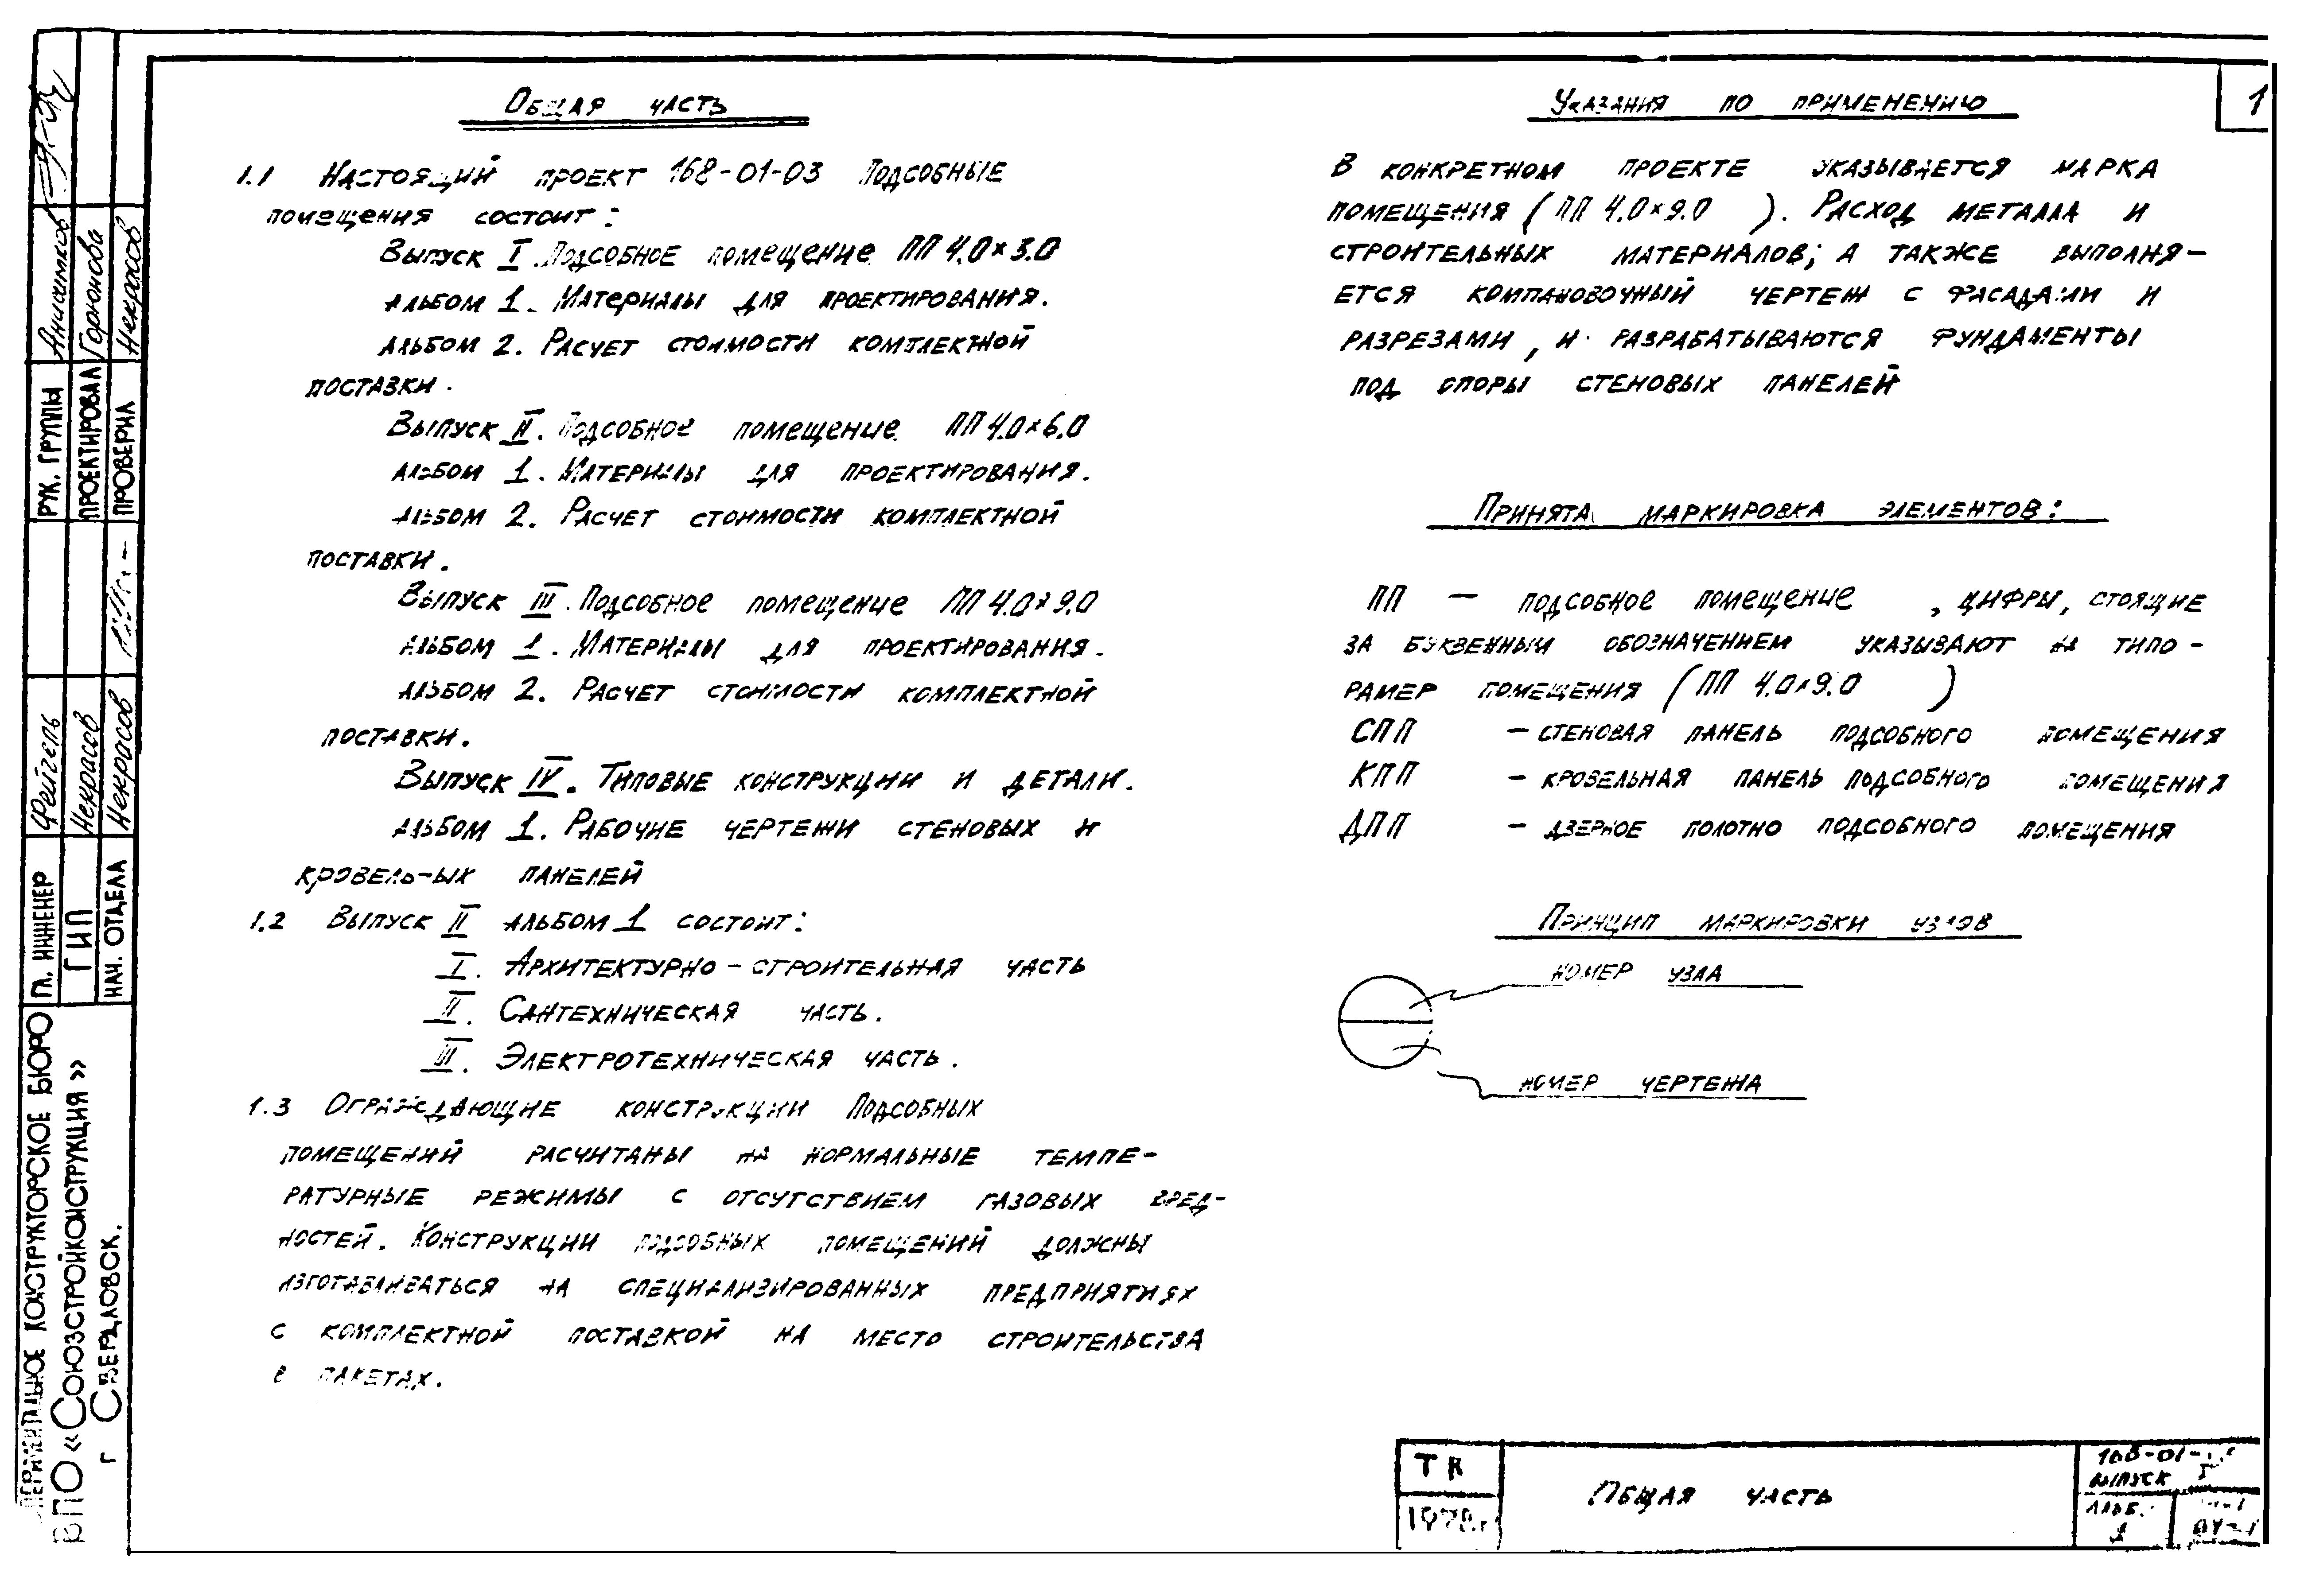 Общая часть
1.1 Настоящий проект 168-01-03 Подсобные
помещения состоит:
Выпуск I. Подсобное помещение ПП 4.0×3.0
альбом 1. Материалы для проектирования.
альбом 2. Расчет стоимости комплектной
поставки.
Выпуск II. Подсобное помещение ПП 4.0×6.0
альбом 1. Материалы для проектирования.
альбом 2. Расчет стоимости комплектной
поставки.
Выпуск III. Подсобное помещение ПП 4.0×9.0
альбом 1. Материалы для проектирования.
альбом 2. Расчет стоимости комплектной
поставки.
Выпуск IV. Типовые конструкции и детали.
альбом 1. Рабочие чертежи стеновых и
кровельных панелей
1.2 Выпуск II альбом 1 состоит:
I. Архитектурно-строительная часть
II. Сантехническая часть.
III. Электротехническая часть.
1.3 Ограждающие конструкции Подсобных
помещений расчитаны на нормальные темпе-
ратурные режимы с отсутствием газовых вред-
ностей. Конструкции подсобных помещений должны
изготавливаться на специализированных предприятиях
с комплектной поставкой на место строительства
в пакетах.
Указания по применению
В конкретном проекте указывается марка
помещения (ПП 4.0×9.0 ). Расход металла и
строительных материалов; а также выполня-
ется компановочный чертеж с фасадами и
разрезами, и разрабатываются фундаменты
под опоры стеновых панелей
Принята маркировка элементов:
ПП — подсобное помещение , цифры, стоящие
за буквенным обозначением указывают на типо-
рамер помещения (ПП 4.0×9.0 )
СПП – стеновая панель подсобного помещения
КПП – кровельная панель подсобного помещения
ДПП – дверное полотно подсобного помещения
Принцип маркировки узлов
номер узла
номер чертежа
1
ТК
1978г
Общая часть
168-01-
Выпуск
Альб.
1
Рук. группы
Проектировал Горюнова
Проверил Некрасов
Гл. инженер Фейгель
ГИП Некрасов
Нач. отдела Некрасов
конструкторское бюро
ВПО «Союзстройконструкция»
г Свердловск.